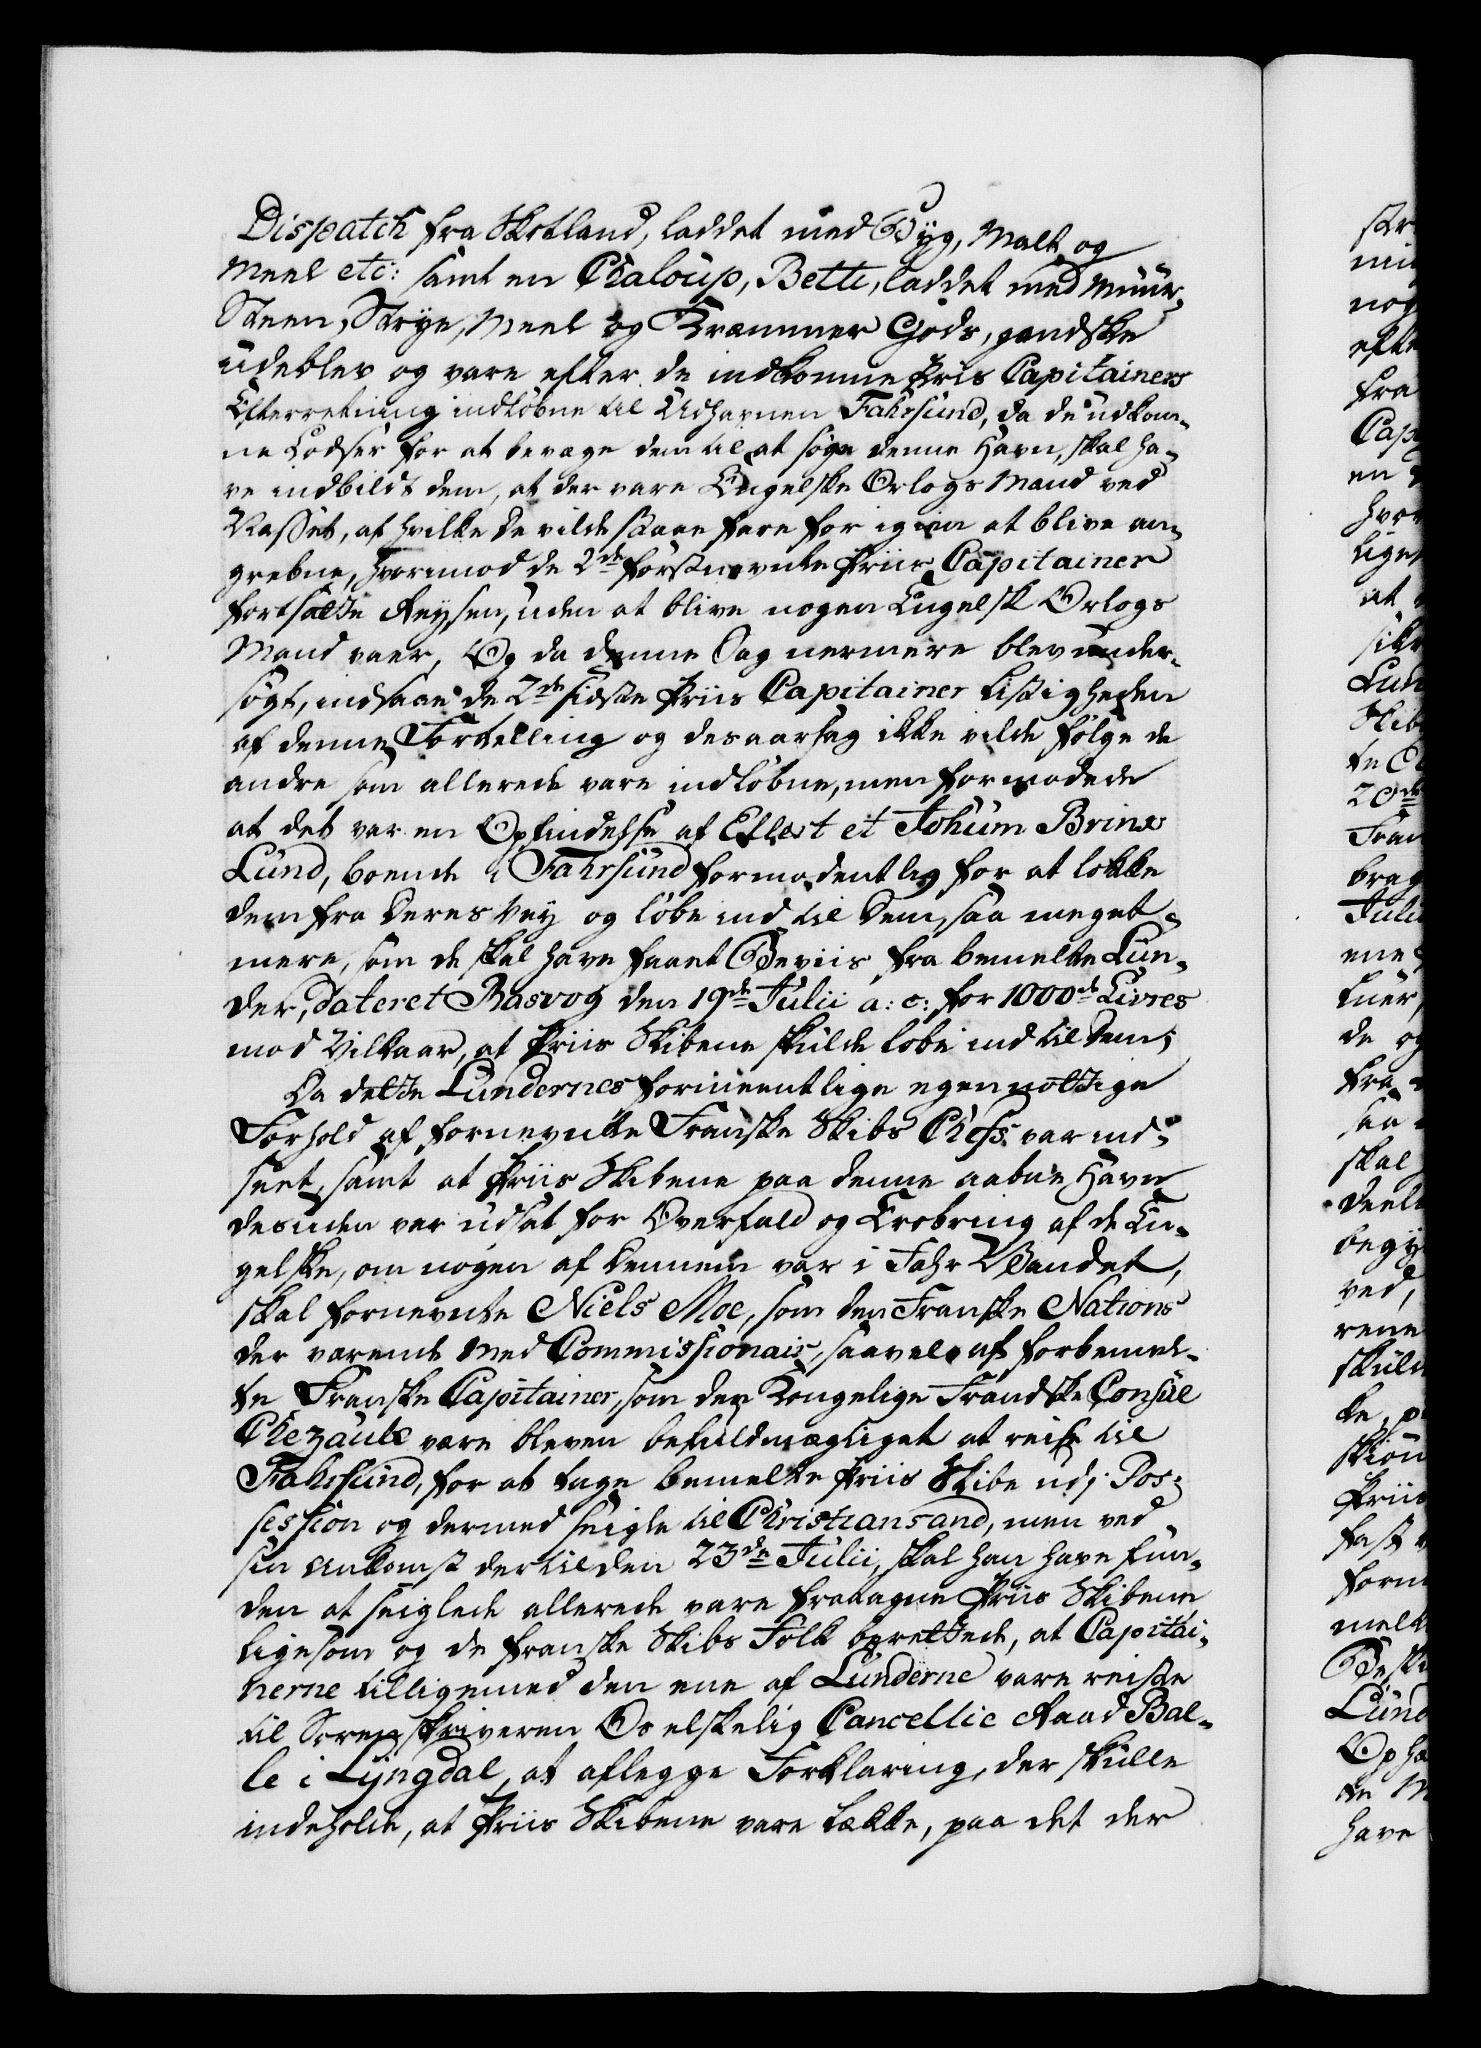 Dispatch fra Skotland, laddet med Byg, Malt og
Meel etc: samt en Chaloup, Bette, laddet med Muur-
Steen, Strye, Meel og Kræmmer Gods, gandske
udeblev og vare efter de indkomne Priis Capitainers
Efterretning indløbne til Udhavnen Fahrsund, da de udkom-
ne Lodser for at bevæge dem til at søge denne Havn, skal ha-
ve indbildt dem, at der vare Engelske Orlogs Mænd ved
Næsset, af hvilke de vilde staae fare for igien at blive an-
grebne, hvorimod de 2de førstnevnte Priis Capitainer
fortsatte Reysen, uden at blive nogen Engelsk Orlogs
Mand vaer, Og da denne Sag nermere blev under-
søgt, indsaae de 2de sidste Priis Capitainer listigheden
af denne Fortelling og desaarsag ikke vilde følge de
andre som allerede vare indløbne, men formodede
at det var en Opfindelse af Eilert et Jochum Brinx
Lund, boende i Fahrsund formodentlig for at lokke
dem fra deres Vey og løbe ind til dem, saa meget
mere, som de skal have faaet Beviis fra bemelte Lun-
der, dateret Basvog den 19de Julii a: c: for 1000de Livres
mod Vilkaar, at Priis Skibene skulde løbe ind til dem;
Da dette Lundernes formeentlige egennottige
Forhold af fornevnte Franske Skibs Chefs var ind-
seet, samt at Priis Skibene paa denne aabne Havn
desuden var udsat for Overfald og Erobring af de En-
gelske, om nogen af dennem var i Fahr Vandet,
skal fornevnte Niels Moe, som den Franske Nations
der værende Med Commissionair, saavel af forbemel-
te Franske Capitainer, som den Kongelige Frandske Consul
Chezaulx være bleven befuldmægtiget at reise til
Fahrsund, for at tage bemelte Priis Skibe udj Pos-
session og dermed seigle til Christiansand, men ved
sin Ankomst dertil den 23de Julii, skal han have fun-
den at Seiglene allerede vare fratagne Priis Skibene
ligesom og de franske Skibs Folk berettede, at Capitai-
nerne tilligemed den ene af Lunderne vare reiste
til Sorenskriveren Os elskelig Cancellie Raad Bal-
le i Lyngdal, at aflegge Forklaring, der skulle
indeholde, at Priis Skibene vare lække, paa det der